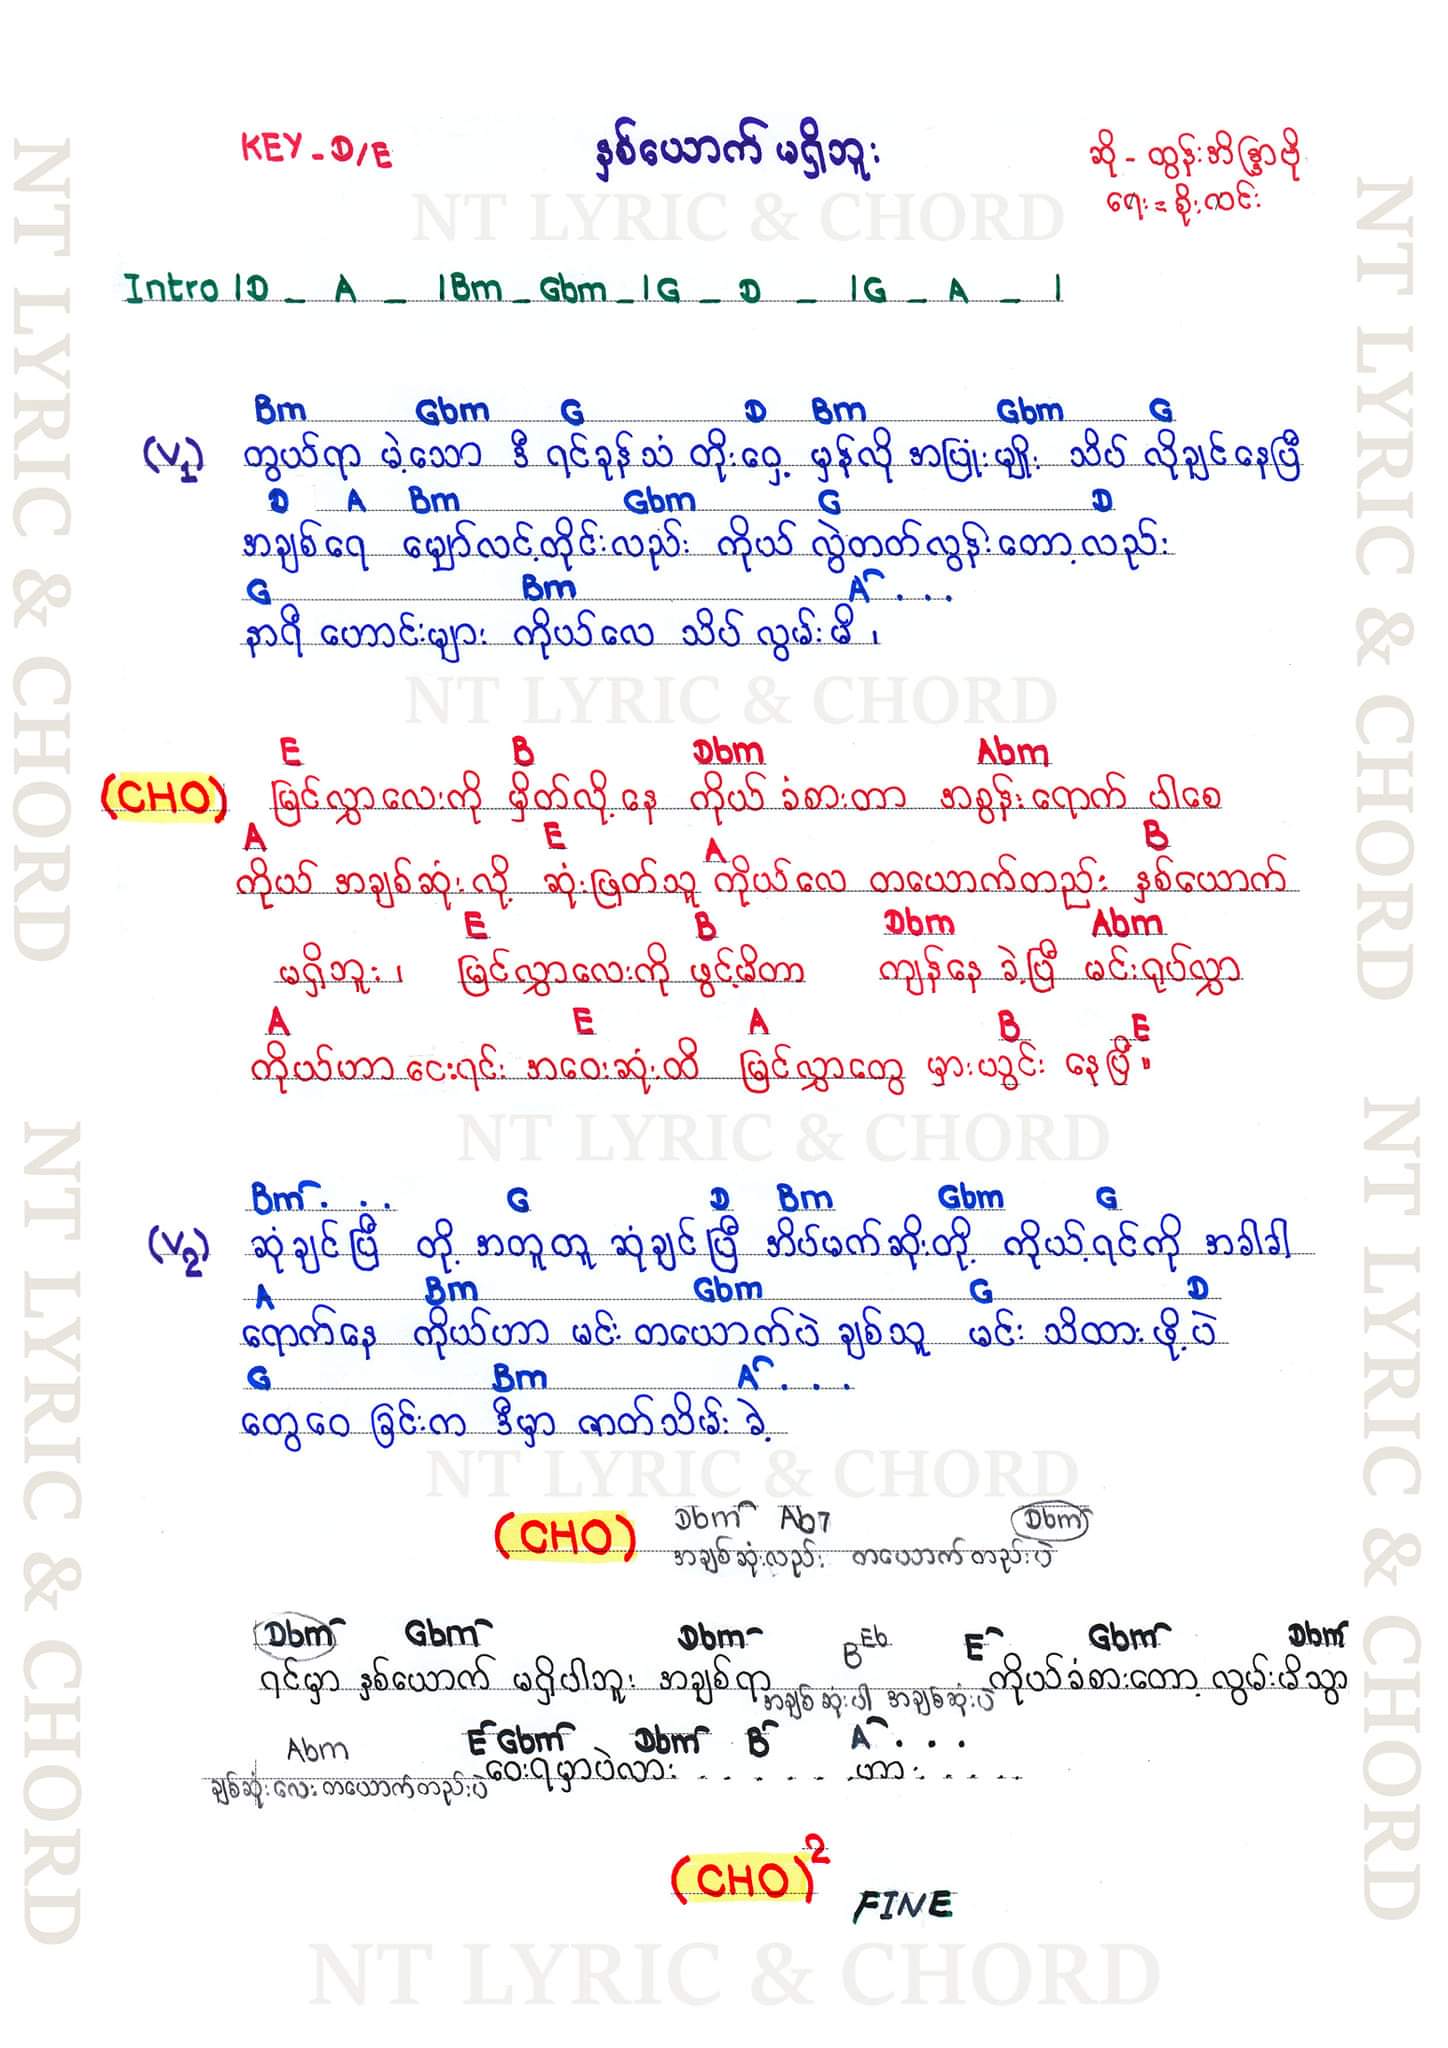 KEY - D/E
နှစ်ယောက် မရှိဘူး
ဆို - ထွန်းအိန္ဒြာဗို
ရေး = စိုးလင်း
NT LYRIC & CHORD
Intro | D _ A _ | Bm _ Gbm _ | G _ D _ | G _ A _ |
Bm Gbm G D Bm Gbm G
(V1) တွယ်ရာ မဲ့သော ဒီ ရင်ခုန်သံ တိုးဝှေ့ မှန်လို အပြုံးမျိုး သိပ် လိုချင်နေပြီ
D A Bm Gbm G D
အချစ်ရေ မျှော်လင့်တိုင်းလည်း ကိုယ် လွဲတတ်လွန်းတော့လည်း
G Bm A . . .
နာရီ ဟောင်းများ ကိုယ်လေ သိပ် လွမ်းမိ ၊
NT LYRIC & CHORD
E B Dbm Abm
(CHO) မြင်လွှာလေးကို မှိတ်လို့နေ ကိုယ် ခံစားတာ အစွန်းရောက် ပါစေ
A E A B
ကိုယ် အချစ်ဆုံးလို့ ဆုံးဖြတ်သူ ကိုယ်လေ တယောက်တည်း နှစ်ယောက်
E B Dbm Abm
မရှိဘူး ၊ မြင်လွှာလေးကို ဖွင့်မိတာ ကျန်နေ ခဲ့ပြီ မင်းရုပ်လွှာ
A E A B E
ကိုယ်ဟာ ငေးရင်း အဝေးဆုံးထိ မြင်လွှာတွေ မှားယွင်း နေပြီ ။
NT LYRIC & CHORD
Bm . . . G D Bm Gbm G
(V2) ဆုံချင်ပြီ တို့ အတူတူ ဆုံချင်ပြီ အိပ်မက်ဆိုးတို့ ကိုယ့်ရင်ကို အခါခါ
A Bm Gbm G D
ရောက်နေ ကိုယ်ဟာ မင်း တယောက်ပဲ ချစ်သူ မင်း သိထားဖို့ပဲ
G Bm A . . .
တွေဝေ ခြင်းက ဒီမှာ ဇာတ်သိမ်း ခဲ့
NT LYRIC & CHORD
Dbm Ab7 Dbm
(CHO) အချစ်ဆုံးလည်း တယောက်တည်းပဲ
Dbm Gbm Dbm B Eb E Gbm Dbm
ရင်မှာ နှစ်ယောက် မရှိပါဘူး အချစ်ရာ အချစ်ဆုံးပါ အချစ်ဆုံးပဲ ကိုယ်ခံစားတော့ လွမ်းမိသွာ
Abm E Gbm Dbm B A . . .
ချစ်ဆုံးလေး တယောက်တည်းပဲ ဝေးရမှာပဲလား . . . . . . ဟာ . . . . .
(CHO)2 FINE
NT LYRIC & CHORD
NT LYRIC & CHORD
NT LYRIC & CHORD
NT LYRIC & CHORD
NT LYRIC & CHORD